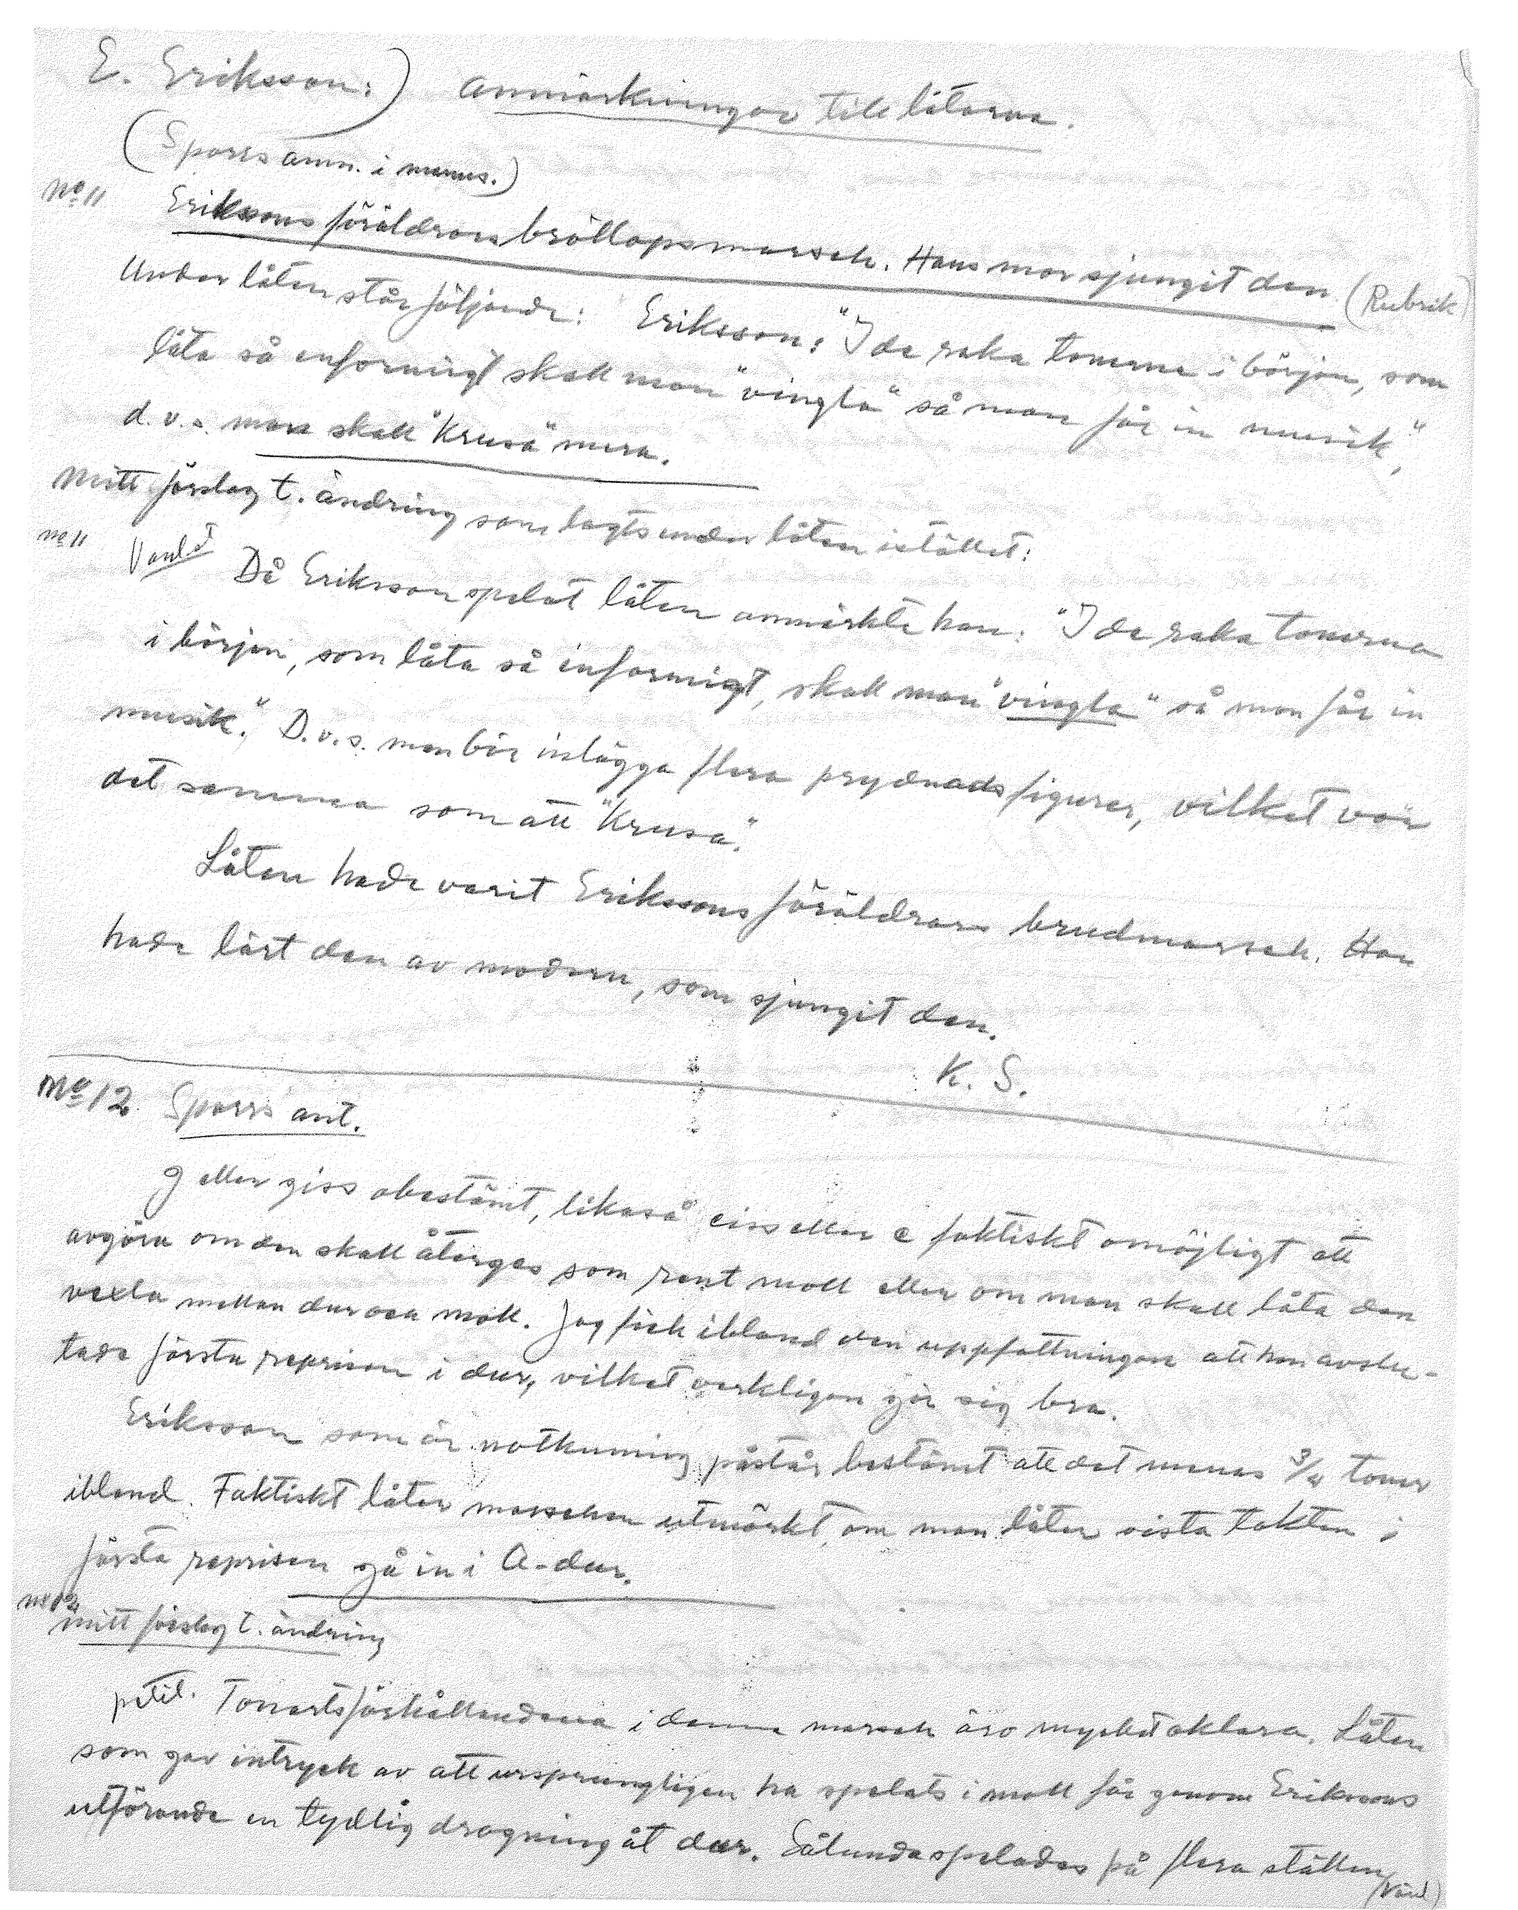 E. Eriksson:) Anmärkningar till låtarna.
(Sporrs anm. i manus.)
No 11 Erikssons föräldrars bröllopsmarsch. Hans mor sjungit den. (Rubrik)
Under låten står följande: Eriksson: "I de raka tonerna i början, som
låta så enformigt skall man "vingla" så man får in musik",
d.v.s. man skall "krusa" mera.
Mitt förslag t. ändring som lagts under låten istället:
No 11 Då Eriksson spelat låten anmärkte han: "I de raka tonerna
i början, som låta så enformigt, skall man "vingla" så man får in
musik." D.v.s. man bör inlägga flera prydnadsfigurer, vilket var
det samma som att "krusa".
Låten hade varit Erikssons föräldrars brudmarsch. Han
hade lärt den av modern, som sjungit den.
K. S.
No 12 Sporrs ant.
g eller giss obestämt, likaså ciss eller c faktiskt omöjligt att
avgöra om den skall återges som rent moll eller om man skall låta den
vexla mellan dur och moll. Jag fick ibland den uppfattningen att han avslu-
tade första reprisen i dur, vilket verkligen gör sig bra.
Eriksson som är notkunnig påstår bestämt att det menas 3/4 toner
ibland. Faktiskt låter marschen utmärkt om man låter sista takten i
första reprisen gå in i A-dur.
No 12
Mitt förslag t. ändring
petit. Tonartsförhållandena i denna marsch äro mycket oklara. Låten
som gav intryck av att ursprungligen ha spelats i moll får genom Erikssons
utförande en tydlig dragning åt dur. Sålunda spelades på flera ställen
(Vänd)